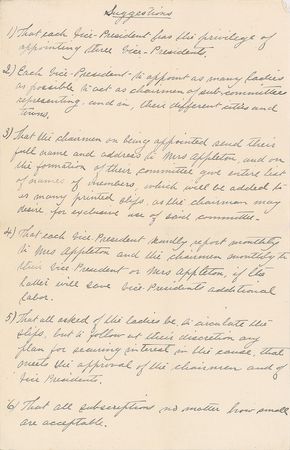 Suggestions
1) That each Vice-President has the privilege of
appointing three Vice-Presidents.
2) Each Vice-President to appoint as many ladies
as possible to act as chairmen of sub-committees
representing, and in, their different cities and
towns.
3) That the chairmen on being appointed send their
full name and address to Mrs Appleton, and on
the formation of their committee give entire list
of names of members, which will be added to
as many printed slips, as the chairman may
desire for exclusive use of said committee.
4) That each Vice-President kindly report monthly
to Mrs Appleton and the chairmen monthly to
their Vice-President or Mrs Appleton, if the
latter will save Vice-Presidents additional
labor.
5) That all asked of the ladies be, to circulate the
slips, but to follow at their discretion any
plan for securing interest in the cause, that
meets the approval of the chairmen and of
Vice Presidents.
6) That all subscriptions no matter how small
are acceptable.